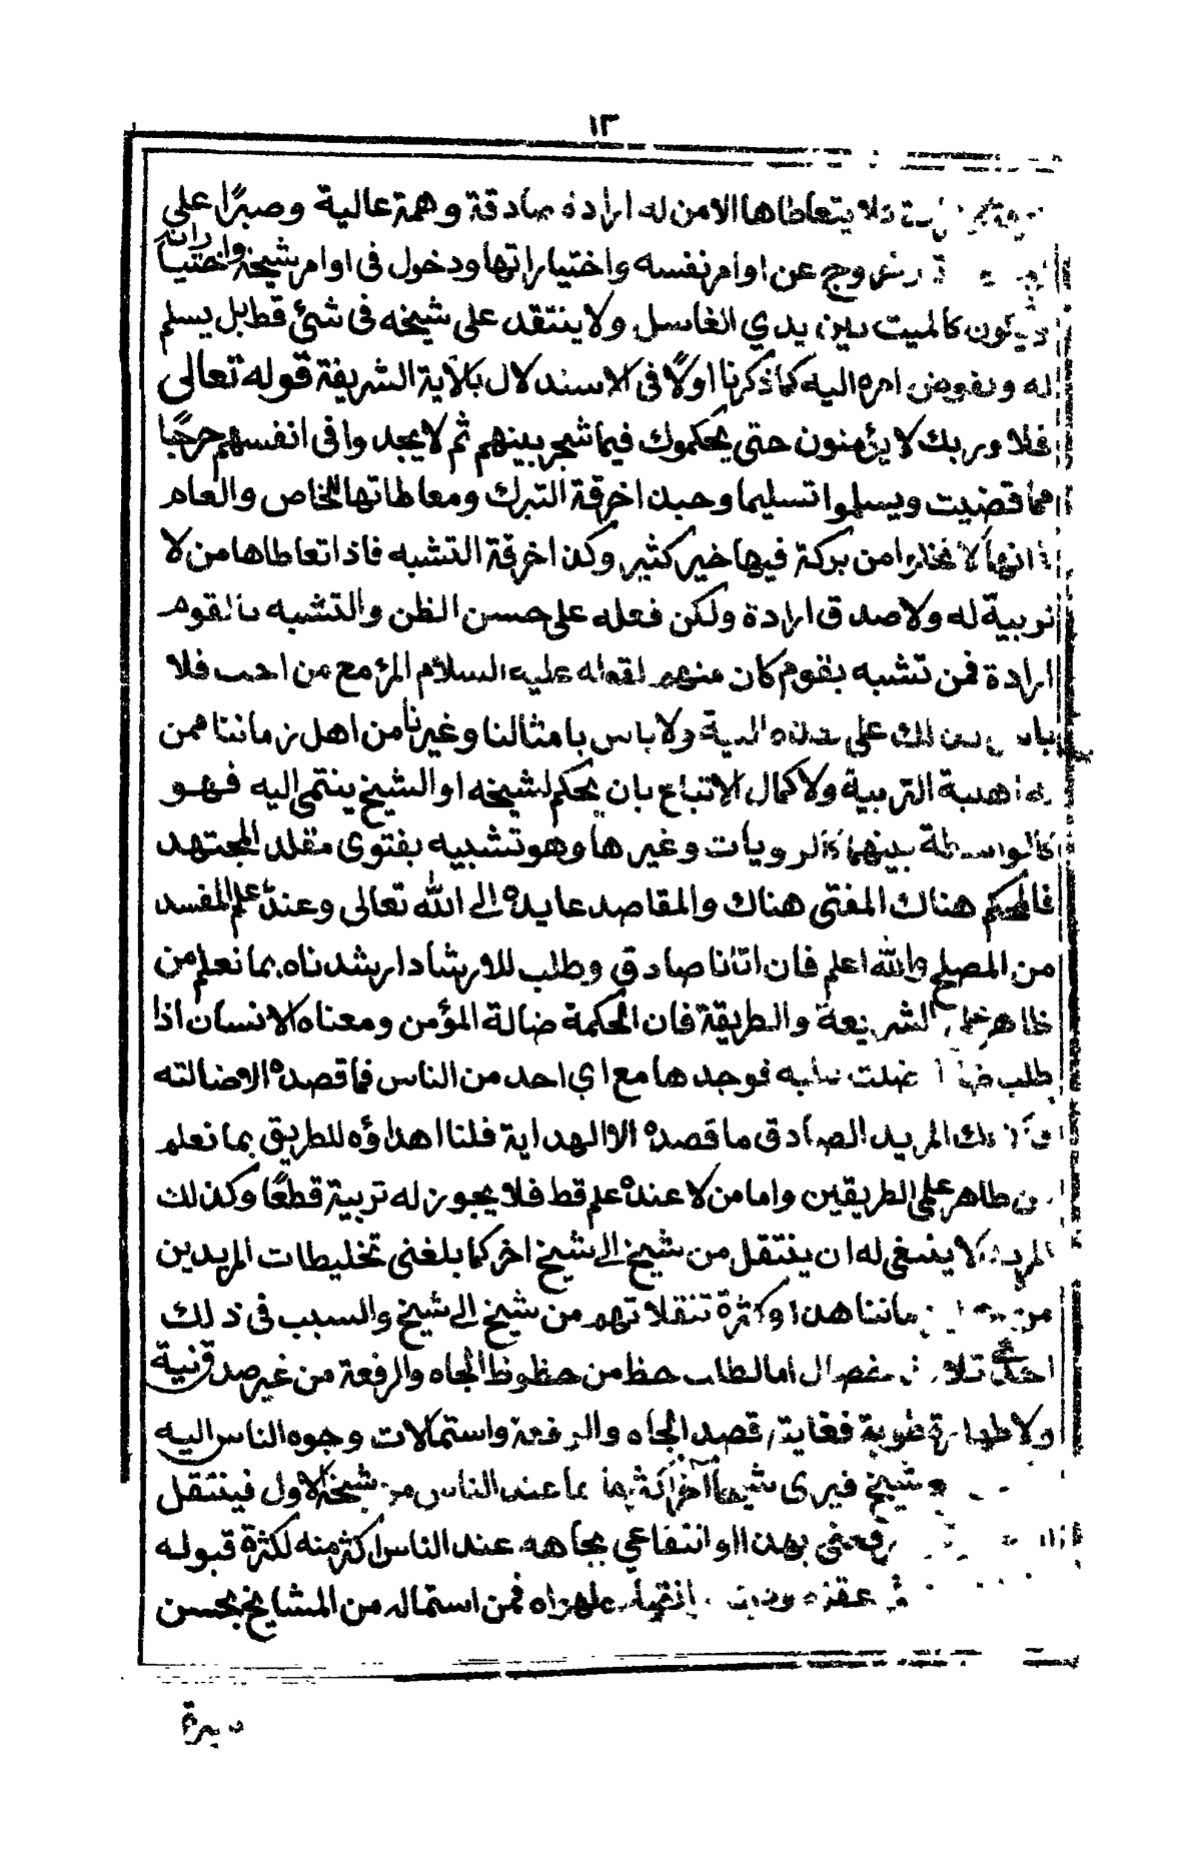 ١٣
فلا يتعاطاها الا من له ارادة صادقة وهمة عالية وصبرًا على
وخروج عن اوامر نفسه واختياراتها ودخول فى اوامر شيخه واختيا راته
كالميت بين يدي الغاسل ولا ينتقد على شيخه فى شئ قط بل يسلم
له ويفوض امره اليه كما ذكرنا اولًا فى الاستدلال بالآية الشريفة قوله تعالى
فلا وربك لا يؤمنون حتى يحكموك فيما شجر بينهم ثم لا يجدوا فى انفسهم حرجًا
مما قضيت ويسلموا تسليما وحبذا خرقة التبرك ومعاطاتها للخاص والعام
من بركة فيها خير كثير وكذا خرقة التشبه فاذا تعاطاها من لا
تربية له ولا صدق ارادة ولكن فعله على حسن الظن والتشبه بالقوم
ارادة فمن تشبه بقوم كان منهم لقوله عليه السلام المرؤ مع من احب فلا
باس بذلك على هذه النية ولا باس بامثالنا وغيرنا من اهل زماننا ممن
اهبة التربية ولا كمال الاتباع بان يحكم لشيخه او الشيخ ينتمى اليه فهو
كالواسطة بينهما كالرويات وغيرها وهو تشبيه بفتوى مقلد المجتهد
فالمحكم هناك المفتى هناك والمقاصد عايدة الى الله تعالى وعنده علم المفسد
من المصلح والله اعلم فان اتانا صادق وطلب للارشاد ارشدناه بما نعلم من
ظاهر الشريعة والطريقة فان الحكمة ضالة المؤمن ومعناه كالانسان اذا
طلب ضلت عليه فوجدها مع اي احد من الناس فما قصده الا ضالته
المريد الصادق ما قصده الا الهداية فلنا اهداؤه للطريق بما نعلم
من ظاهر علمى الطريقين واما من لا عنده علم قط فلا يجوز له تربية قطعًا وكذلك
المريد لا ينبغى له ان ينتقل من شيخ الى شيخ اخر كما بلغنى تخليطات المريدين
من زماننا هذا وكثرة تنقلاتهم من شيخ الى شيخ والسبب فى ذلك
خصال اما لطلب حظ من حظوظ الجاه والرفعة من غير صدق نية
ولا طهارة طوية فغايته قصد الجاه والرفعة واستمالات وجوه الناس اليه
شيخ فيرى شيخًا آخر اكثر مما عند الناس من شيخه الاول فينتقل
بهذا او انتفاعي بجاهه عند الناس اكثر منه لكثرة قبوله
فمن استماله من المشايخ بحسن
سيرة